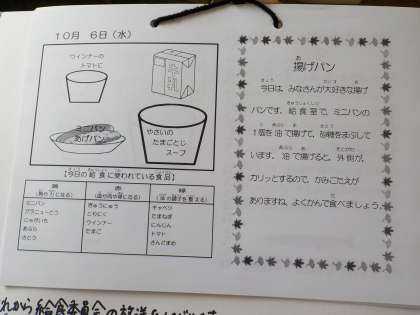 10月 6日(水)
ウインナーの
トマトに
ミニパン
あげパン
やさいの
たまごとじ
スープ
【今日の給食に使われている食品】
黄
赤
緑
ミニパン
グラニューとう
じゃがいも
あぶら
さとう
ぎゅうにゅう
とりにく
ウインナー
たまご
キャベツ
たまねぎ
にんじん
トマト
さんどまめ
揚げパン
今日は、みなさんが大好きな揚げ
パンです。給食室で、ミニパンの
1個を油で揚げて、砂糖をまぶして
います。油で揚げると、外側が、
カリッとするので、かみごたえが
ありますね。よくかんで食べましょう。